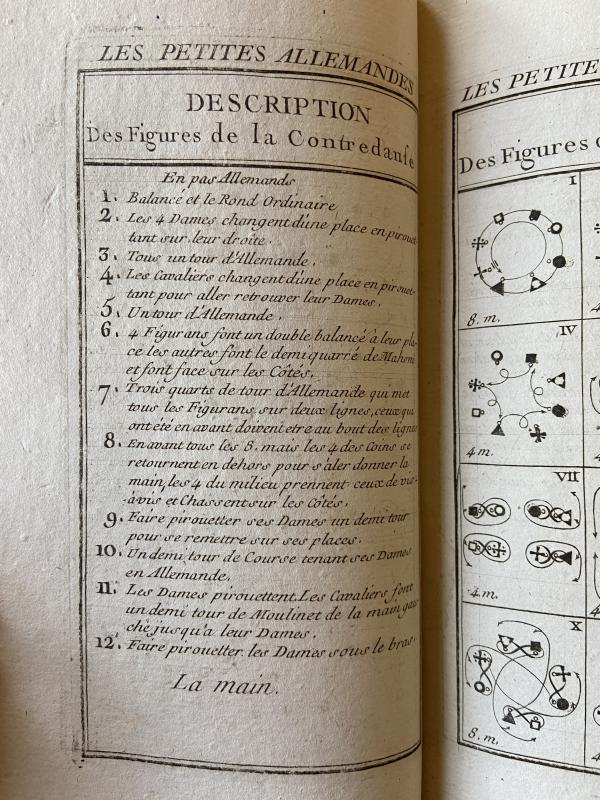 LES PETITES ALLEMANDES
DESCRIPTION
Des Figures de la Contredanse
En pas Allemands
1. Balancé et le Rond Ordinaire
2. Les 4 Dames changent d'une place en pirouet
tant sur leur droite.
3. Tous un tour d'Allemande.
4. Les Cavaliers changent d'une place en pirouet-
tant pour aller retrouver leur Dames.
5. Un tour d'Allemande.
6. 4 Figurans font un double balancé à leur pla-
ce les autres font le demi quarré de Mahoni
et font face sur les Côtés.
7. Trois quarts de tour d'Allemande qui met
tous les Figurans sur deux lignes, ceux qui
ont été en avant doivent etre au bout des lignes
8. En avant tous les 8. mais les 4 des Coins se
retournent en dehors pour s'aler donner la
main, les 4 du milieu prennent ceux de vis-
àvis et Chassent sur les Côtés.
9. Faire pirouetter ses Dames un demi tour
pour se remettre sur ses places.
10. Un demi tour de Course tenant ses Dames
en Allemande.
11. Les Dames pirouettent. Les Cavaliers font
un demi tour de Moulinet de la main gau
che jusqu'a leur Dames.
12. Faire pirouetter les Dames sous le bras.
La main.
LES PETITE
Des Figures
I
8. m.
IV
4 m.
VII
4 m.
X
8. m.